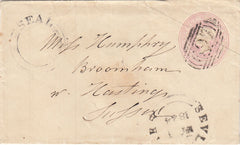 SEAL
Miss Humphry
Broomham
nr Hastings
Sussex
SEAL